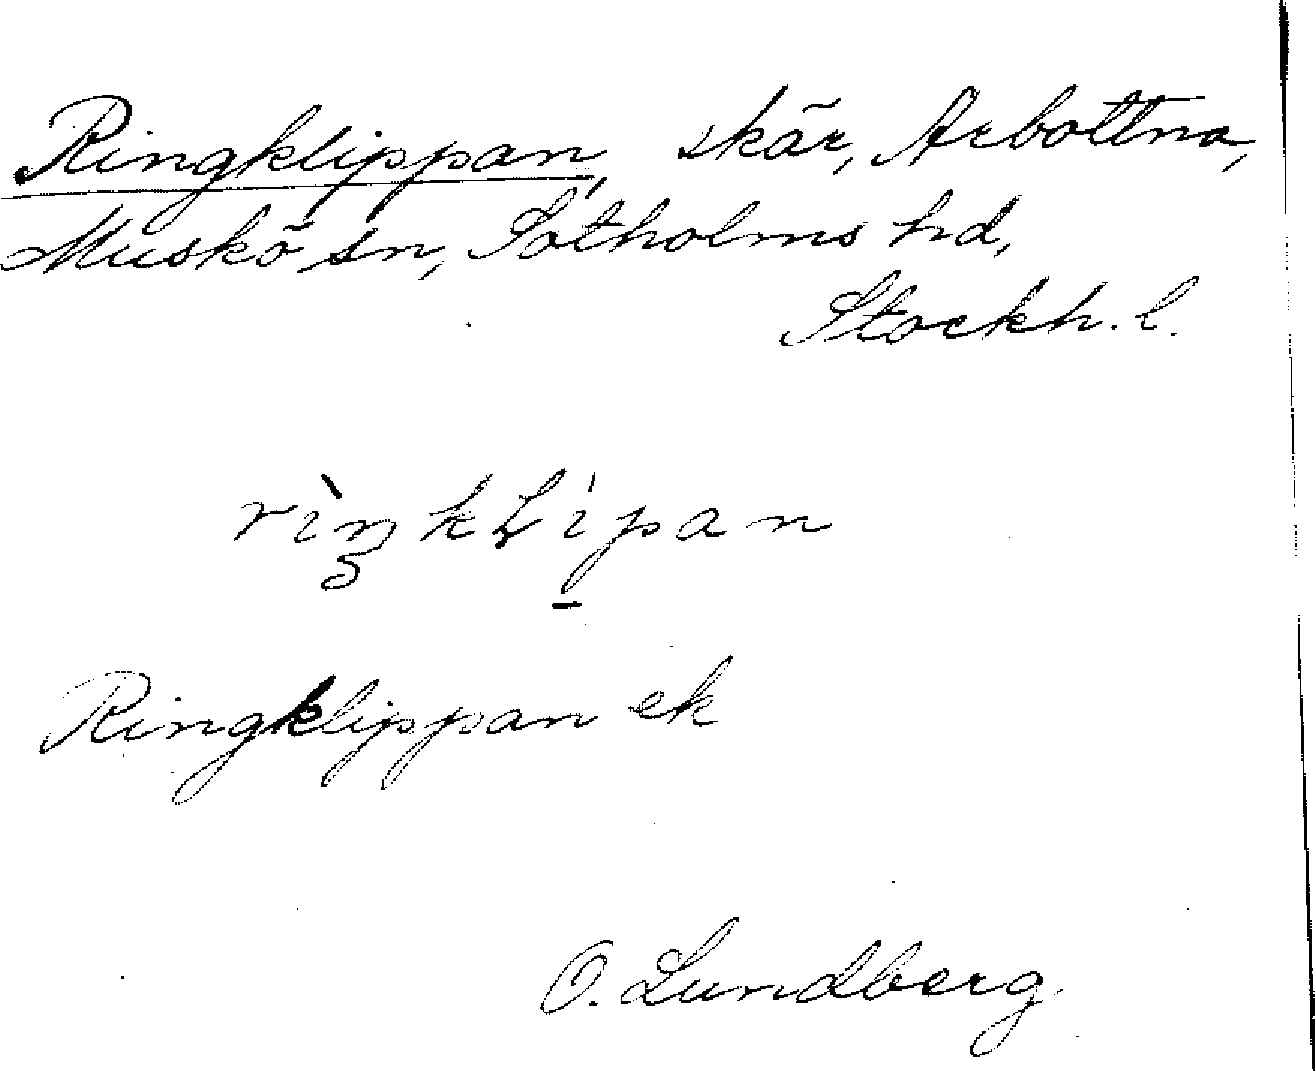 Ringklippan, skär, Arbottna,
Muskö sn, Sotholms hd,
Stockh. l.
Ringklippan ek
O. Lundberg